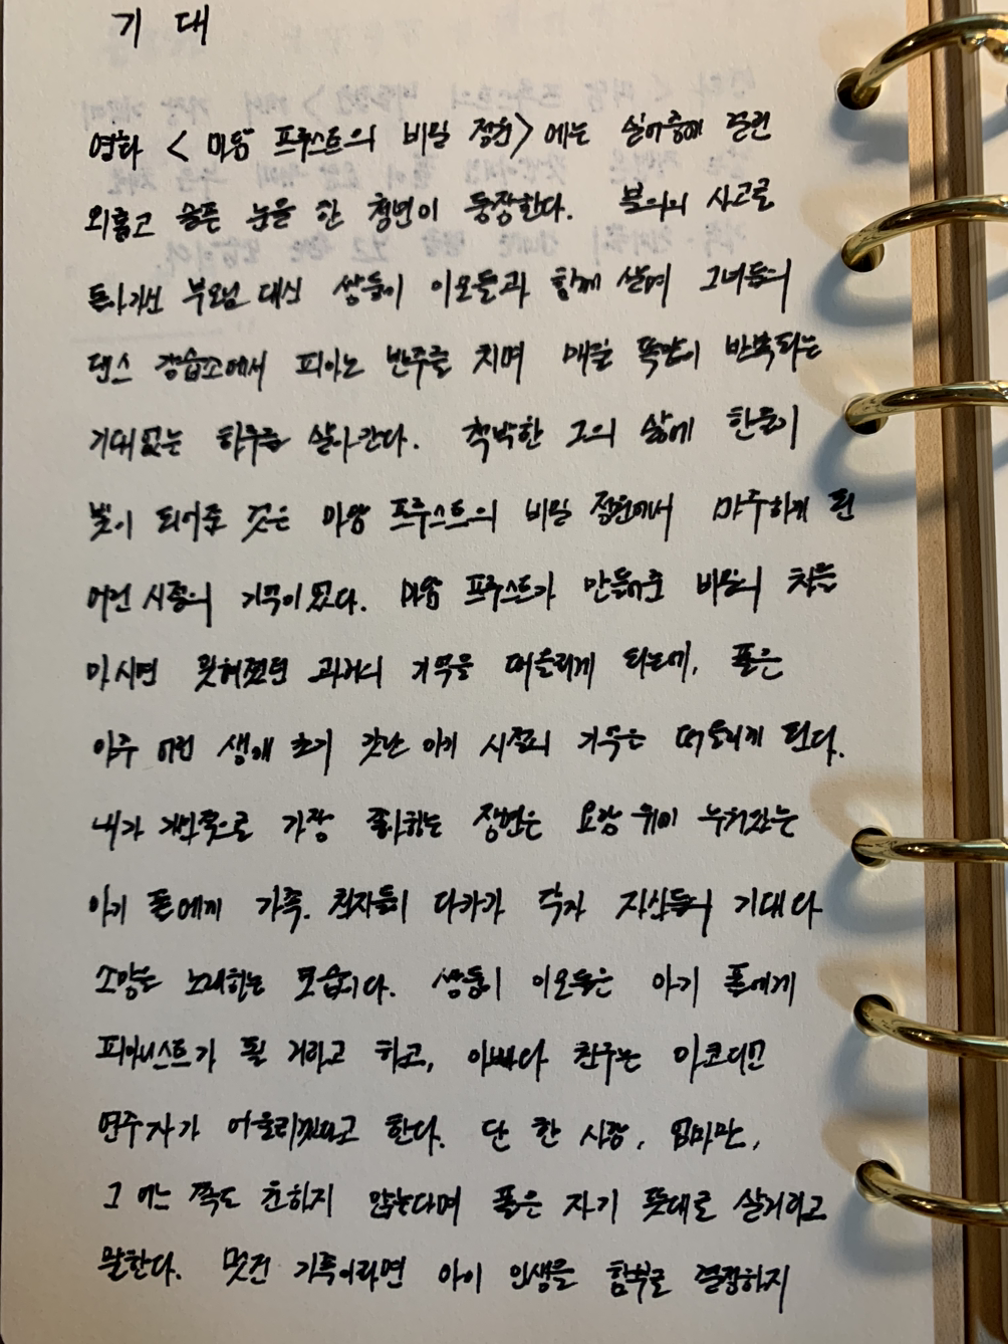 기 대
영화 <마담 프루스트의 비밀 정원>에는 실어증에 걸린
외롭고 슬픈 눈을 한 청년이 등장한다. 불의의 사고로
돌아가신 부모님 대신 쌍둥이 이모들과 함께 살며 그녀들의
댄스 강습소에서 피아노 반주를 치며 매일 똑같이 반복되는
기대없는 하루를 살아간다. 척박한 그의 삶에 한줄기
빛이 되어준 것은 마담 프루스트의 비밀 정원에서 마주하게 된
어린 시절의 기억이었다. 마담 프루스트가 만들어준 비밀의 차를
마시면 잊혀졌던 과거의 기억을 떠올리게 되는데, 폴은
아주 어린 생애 초기 갓난 아기 시절의 기억을 떠올리게 된다.
내가 개인적으로 가장 좋아하는 장면은 요람 위에 누워있는
아기 폴에게 가족, 친지들이 다가가 각자 자신들의 기대나
소망을 노래하는 모습이다. 쌍둥이 이모들은 아기 폴에게
피아니스트가 될 거라고 하고, 아빠와 친구는 아코디언
연주자가 어울리겠다고 한다. 단 한 사람, 엄마만,
그 어느 쪽도 원하지 않는다며 폴은 자기 뜻대로 살거라고
말한다. 멋진 가족이라면 아이 인생을 함부로 결정하지